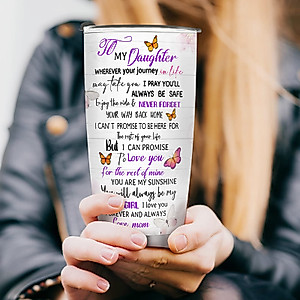 To
MY Daughter
WHEREVER your journey in life
may take you I PRAY YOU'LL
ALWAYS BE SAFE
Enjoy the ride & NEVER FORGET
YOUR WAY BACK HOME
I CAN'T PROMISE TO BE HERE FOR
The rest of your life
But I CAN PROMISE
To love you
for the rest of mine
YOU ARE MY SUNSHINE
will always be my
GIRL I love you
AND ALWAYS
mom